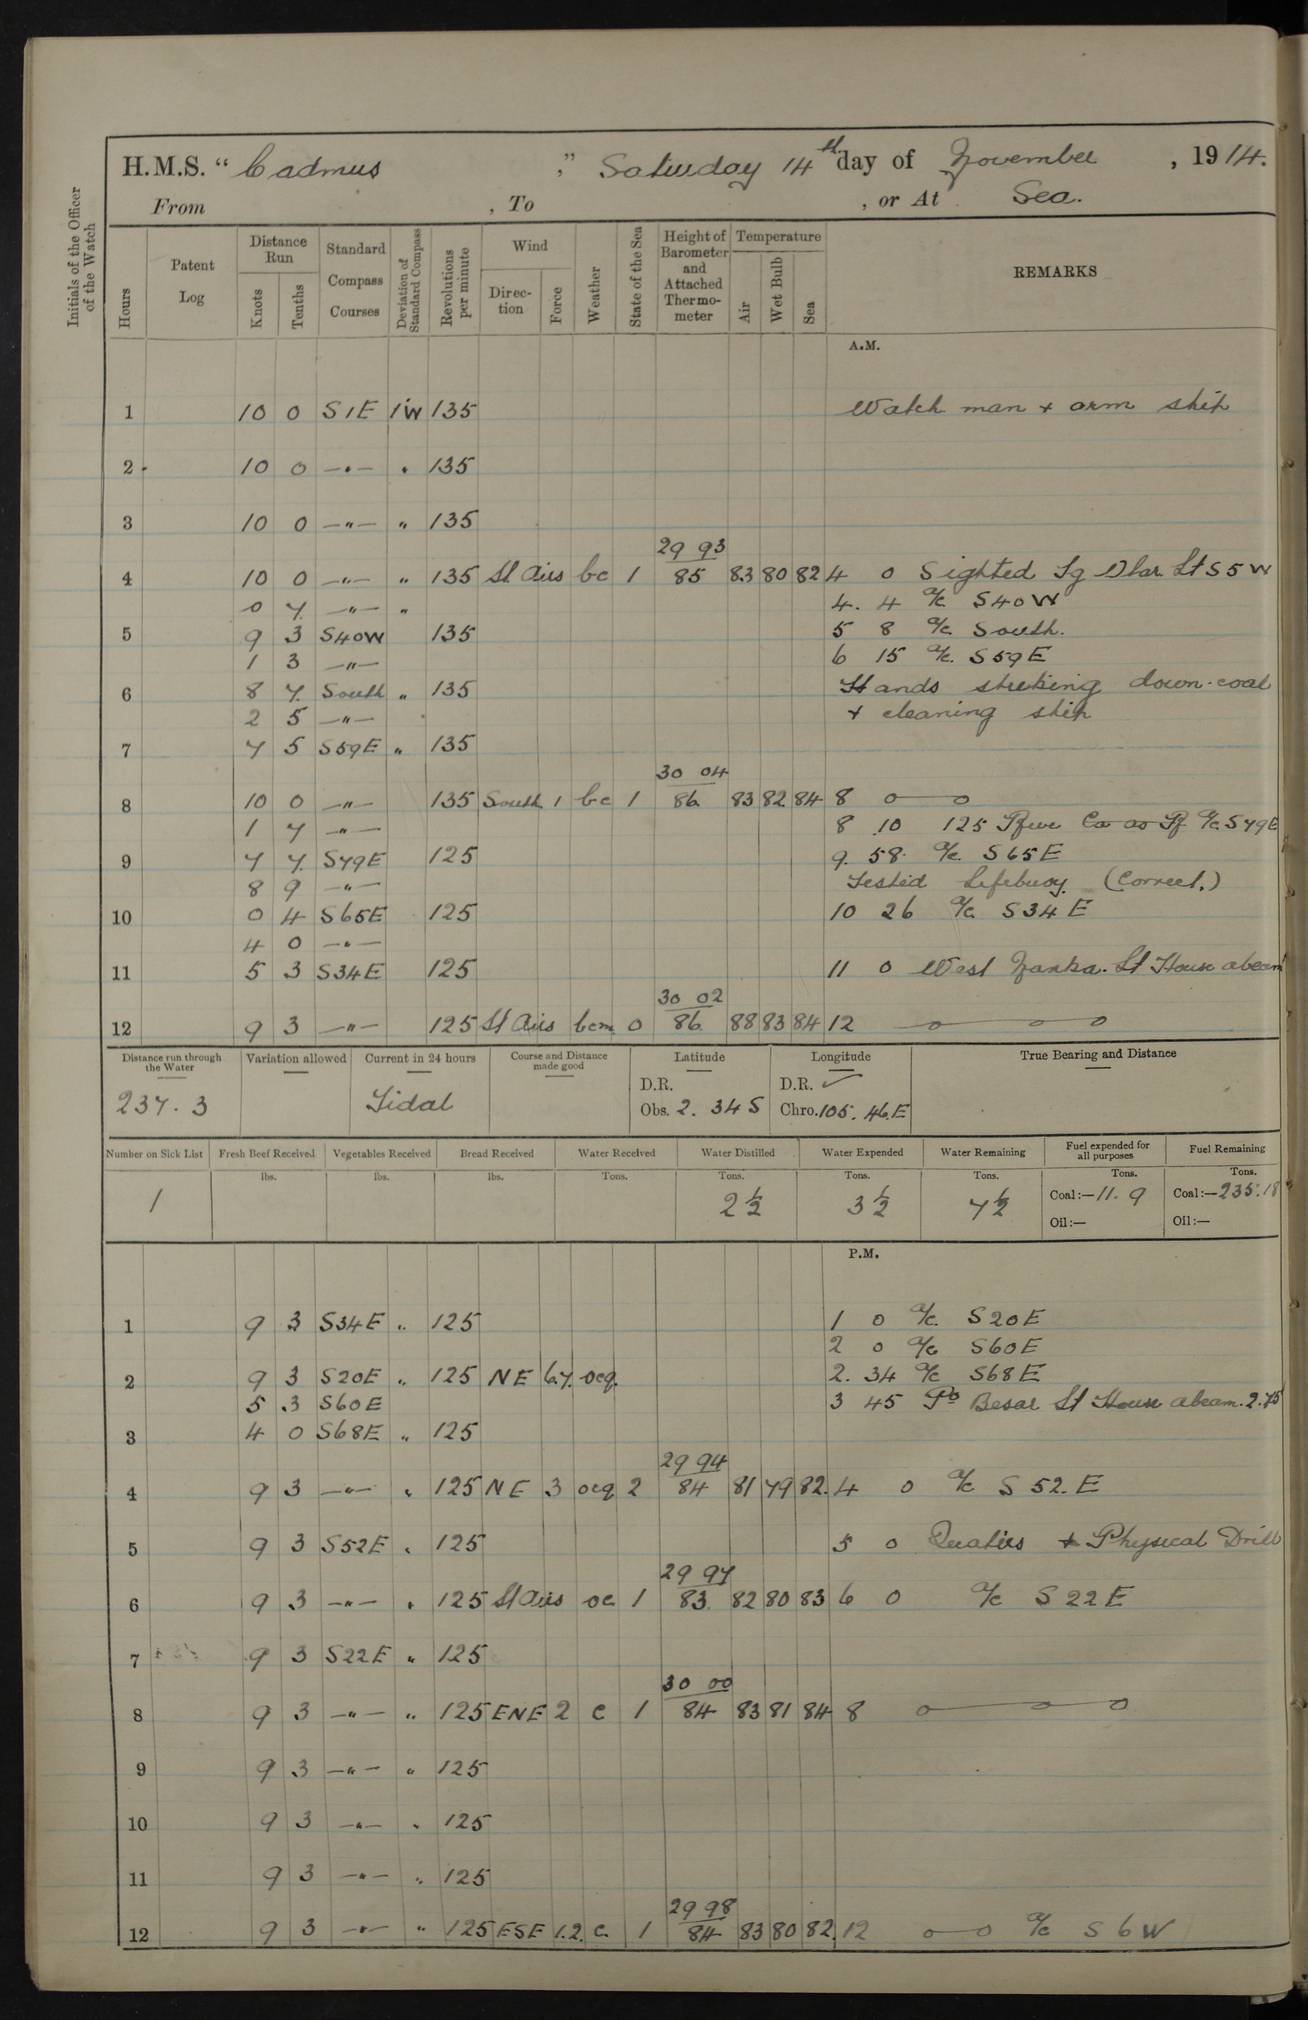 Initials of the Officer of the Watch
H.M.S. “ Cadmus ” Saturday 14th day of November , 1914.
From , To , or At Sea.
Hours Patent Log Distance Run Knots Tenths Standard Compass Courses Deviation of Standard Compass Revolutions per minute Wind Direction Force Weather State of the Sea Height of Barometer and Attached Thermometer Temperature Air Wet Bulb Sea REMARKS
A.M.
1 10 0 S1E 1W 135 Watch man + arm ship
2 10 0 —"— " 135
3 10 0 —"— " 135
29 93
4 10 0 —"— " 135 Lt Airs bc 1 85 83 80 82 4 0 Sighted Tg Ular Lt S5W
0 7 —"— " 4. 4 a/c S40W
5 9 3 S40W 135 5 8 a/c South.
1 3 —"— 6 15 a/c. S59E
6 8 7 South " 135 Hands striking down coal
2 5 —"— + cleaning ship
7 7 5 S59E " 135
30 04
8 10 0 —"— 135 South 1 bc 1 86 83 82 84 8 o—o
1 7 —"— 8 10 125 a/c S79E
9 7 7 S79E 125 9. 58. a/c. S65E
8 9 —"— Tested Lifebuoy. (Correct.)
10 0 4 S65E 125 10 26 a/c S34E
4 0 —"—
11 5 3 S34E 125 11 0 West Nanka. Lt House abeam
30 02
12 9 3 —"— 125 Lt Airs bcm 0 86 88 83 84 12 o—o—o
Distance run through the Water Variation allowed Current in 24 hours Course and Distance made good Latitude Longitude True Bearing and Distance
D.R. D.R. ✓
237.3 Tidal Obs. 2. 34 S Chro. 105. 46.E
Number on Sick List Fresh Beef Received Vegetables Received Bread Received Water Received Water Distilled Water Expended Water Remaining Fuel expended for all purposes Fuel Remaining
lbs. lbs. lbs. Tons. Tons. Tons. Tons. Tons. Tons.
1 2½ 3½ 7½ Coal:—11.9 Coal:—235.18
Oil:— Oil:—
P.M.
1 9 3 S34E " 125 1 0 a/c. S20E
2 0 a/c S60E
2 9 3 S20E " 125 NE 6.7. ocq. 2. 34 a/c S68E
5 3 S60E 3 45 Po Besar Lt House abeam. 2.75
3 4 0 S68E " 125
29 94
4 9 3 —"— " 125 NE 3 ocq 2 84 81 79 82 4 0 a/c S 52. E
5 9 3 S52E " 125 5 0 Quarters + Physical Drill
29 97
6 9 3 —"— " 125 Lt Airs oc 1 83 82 80 83 6 0 a/c S22E
7 9 3 S22E " 125
30 00
8 9 3 —"— " 125 ENE 2 c 1 84 83 81 84 8 o—o—o
9 9 3 —"— " 125
10 9 3 —"— " 125
11 9 3 —"— " 125
29 98
12 9 3 —"— " 125 ESE 1.2. c. 1 84 83 80 82 12 o—o a/c S6W